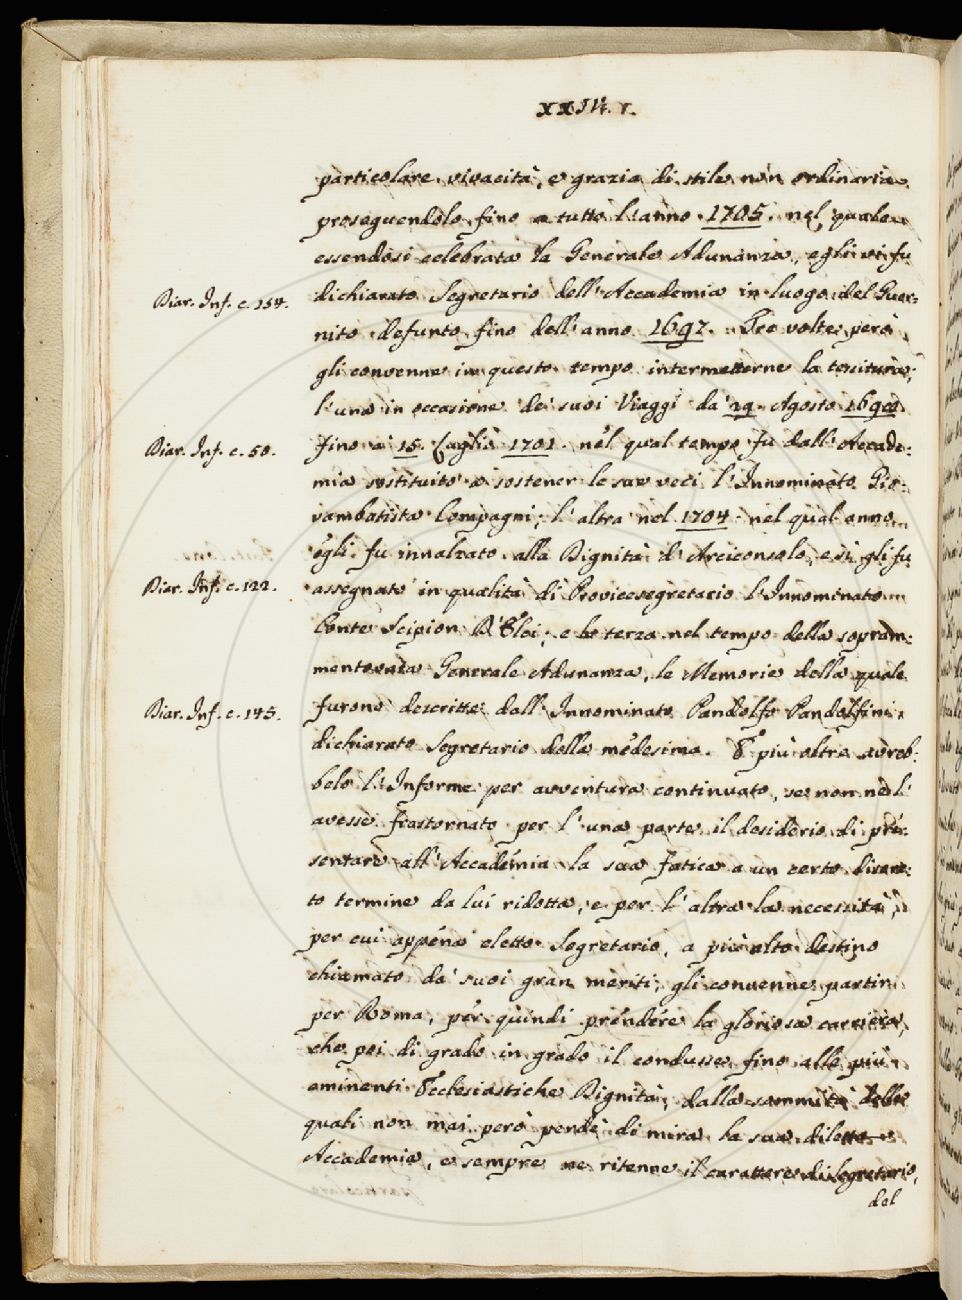 XXIV. v.
particolare vivacità, e grazia di stile non ordinaria
proseguendolo fino a tutto l'anno 1705. nel quale
essendosi celebrata la Generale Adunanza, egli vi fu
Diar. Inf. c. 154.
dichiarato Segretario dell'Accademia in luogo del Guer-
nito defunto fino dell'anno 1697. Tre volte però
gli convenne in questo tempo intermetterne la tessitura;
l'una in occasione de' suoi Viaggi da' 29. Agosto
Diar. Inf. c. 50.
fino a' 15. Luglio 1701. nel qual tempo fu dall'Accade-
mia sostituito a sostener le sue veci l'Innominato Gio-
vambatista Compagni; l'altra nel 1704. nel qual anno
egli fu innalzato alla Dignità d'Arciconsolo, e si gli fu
Diar. Inf. c. 122.
assegnato in qualità di Provicesegretario l'Innominato
Conte Scipion D'Elci; e la terza nel tempo della sopram-
mentovata Generale Adunanza, le Memorie della quale
Diar. Inf. c. 145.
furono descritte dall'Innominato Pandolfo Pandolfini
dichiarato Segretario della medesima. E più oltre avreb-
belo l'Informe per avventura continuato, se non ne l'
avesse frastornato per l'una parte il desiderio di pre-
sentare all'Accademia la sua fatica a un certo
to termine da lui ridotta, e per l'altra la necessità,
per cui appena eletto Segretario, a più alto destino
chiamato da' suoi gran meriti, gli convenne partir
per Roma, per quindi prendere la gloriosa carriera,
che poi di grado in grado il condusse fino alle più
eminenti Ecclesiastiche Dignità; dalla sommità delle
quali non mai però perdè di mira la sua diletta
Accademia, e sempre ne ritenne il carattere di Segretario,
del